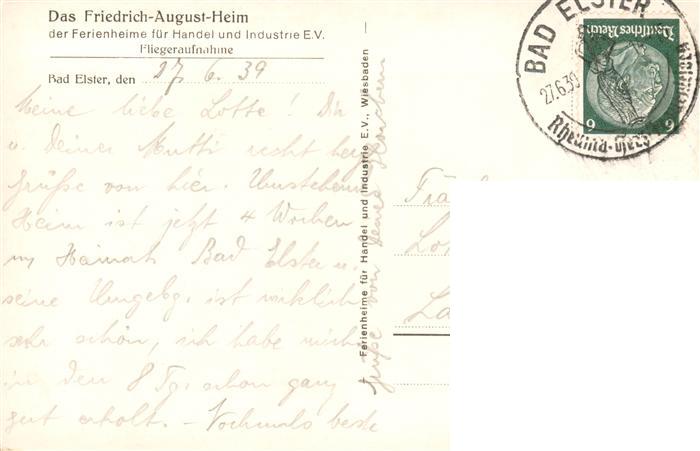 Das Friedrich-August-Heim
der Ferienheime für Handel und Industrie E.V.
Fliegeraufnahme
Bad Elster, den 27. 6. 39
Meine liebe Lotte! Dir
u. deiner Mutti recht
Grüße von hier. Umstehend
Heim ist jetzt 4 Wochen
m Heimat. Bad Elster u.
seine Umgebg. ist wirklich
sehr schön, ich habe mich
in den 8 Tg. schon ganz
gut erholt. – Nochmals beste
Grüße von
Ferienheime für Handel und Industrie E.V., Wiesbaden
BAD ELSTER
27.6.39
Rheuma
Deutsches Reich
6 6